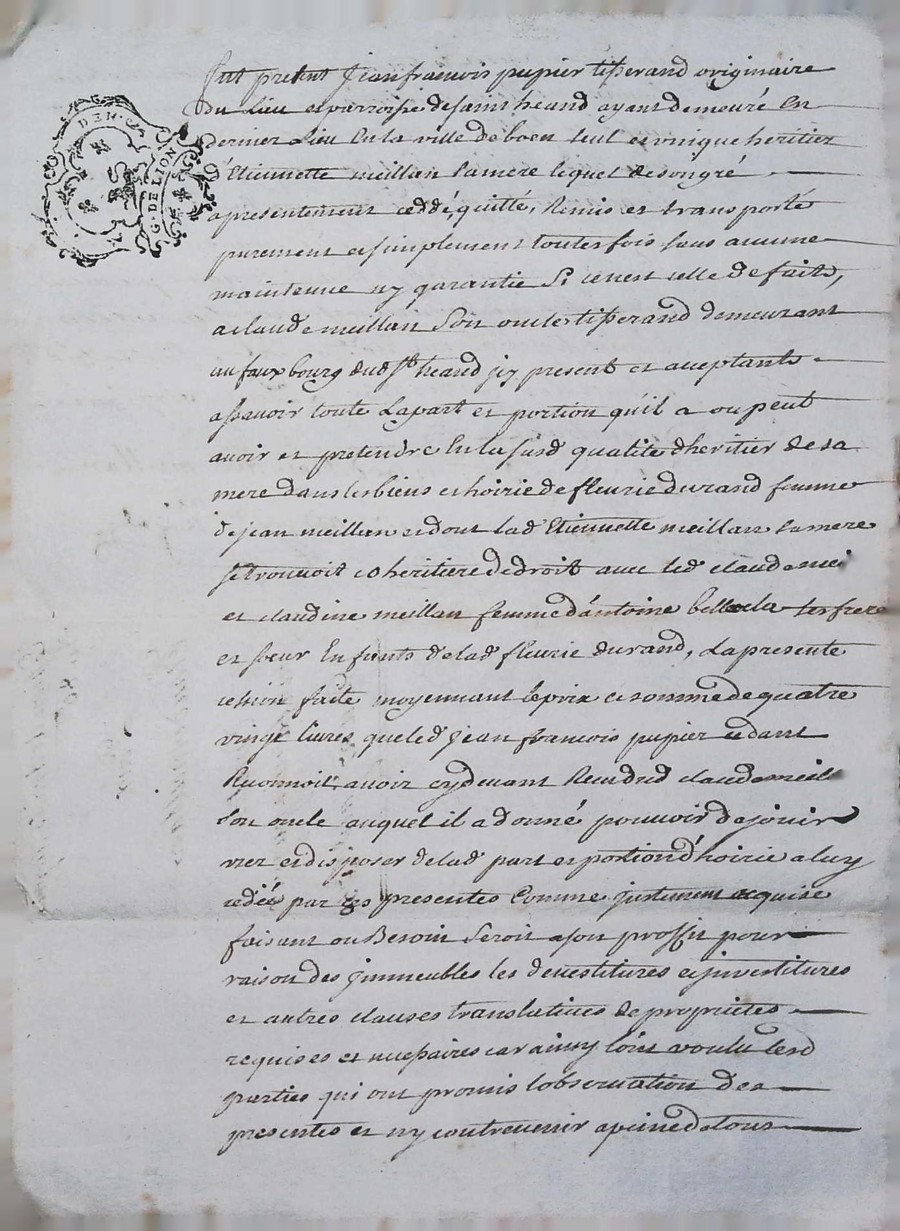 DE H.
G. DE LION
Fut present Jean francois pupier tisserand originaire
Du Lieu et parroisse de saint heand ayant demeuré En
Dernier Lieu En la ville de boen seul et unique heritier
d'Etiennette meillan sa mere lequel de son gré
apresentement ceddé, quitté, Remis et transporté
purement et simplement toutesfois sans aucune
maintenue ny garantie Si ce nest celle de faits,
a claude meillan Son oncle tisserand demeurant
au faux bourg dud st heand icy present et acceptant
assavoir toute Lapart et portion quil a ou peut
avoir et pretendre En la susd qualité dheritier de sa
mere dans les biens et hoirie de fleurie durand femme
de jean meillan et dont lad Etiennette meillan sa mere
se trouvoit coheritiere de droit avec led claude mei
et claudine meillan femme d'antoine ses frere
et soeur Enfants de lad fleurie durand, La presente
cession faite moyennant le prix et somme de quatre
vingt livres que led jean francois pupier cedant
Reconnoit avoir cy devant Receu dud claude meill
son oncle auquel il a donné pouvoir de jouir
user et disposer de lad part et portion d'hoirie a luy
cedée par ces presentes Comme justement acquise
faisant ou Besoin Seroit a son proffit pour
raison des jmmeubles les devestitures et jnvestitures
et autres clauses translatives de proprietés
requises et necessaires car ainsy lont voulu lesd
parties qui ont promis lobservation des
presentes et ny contrevenir a peine de tous